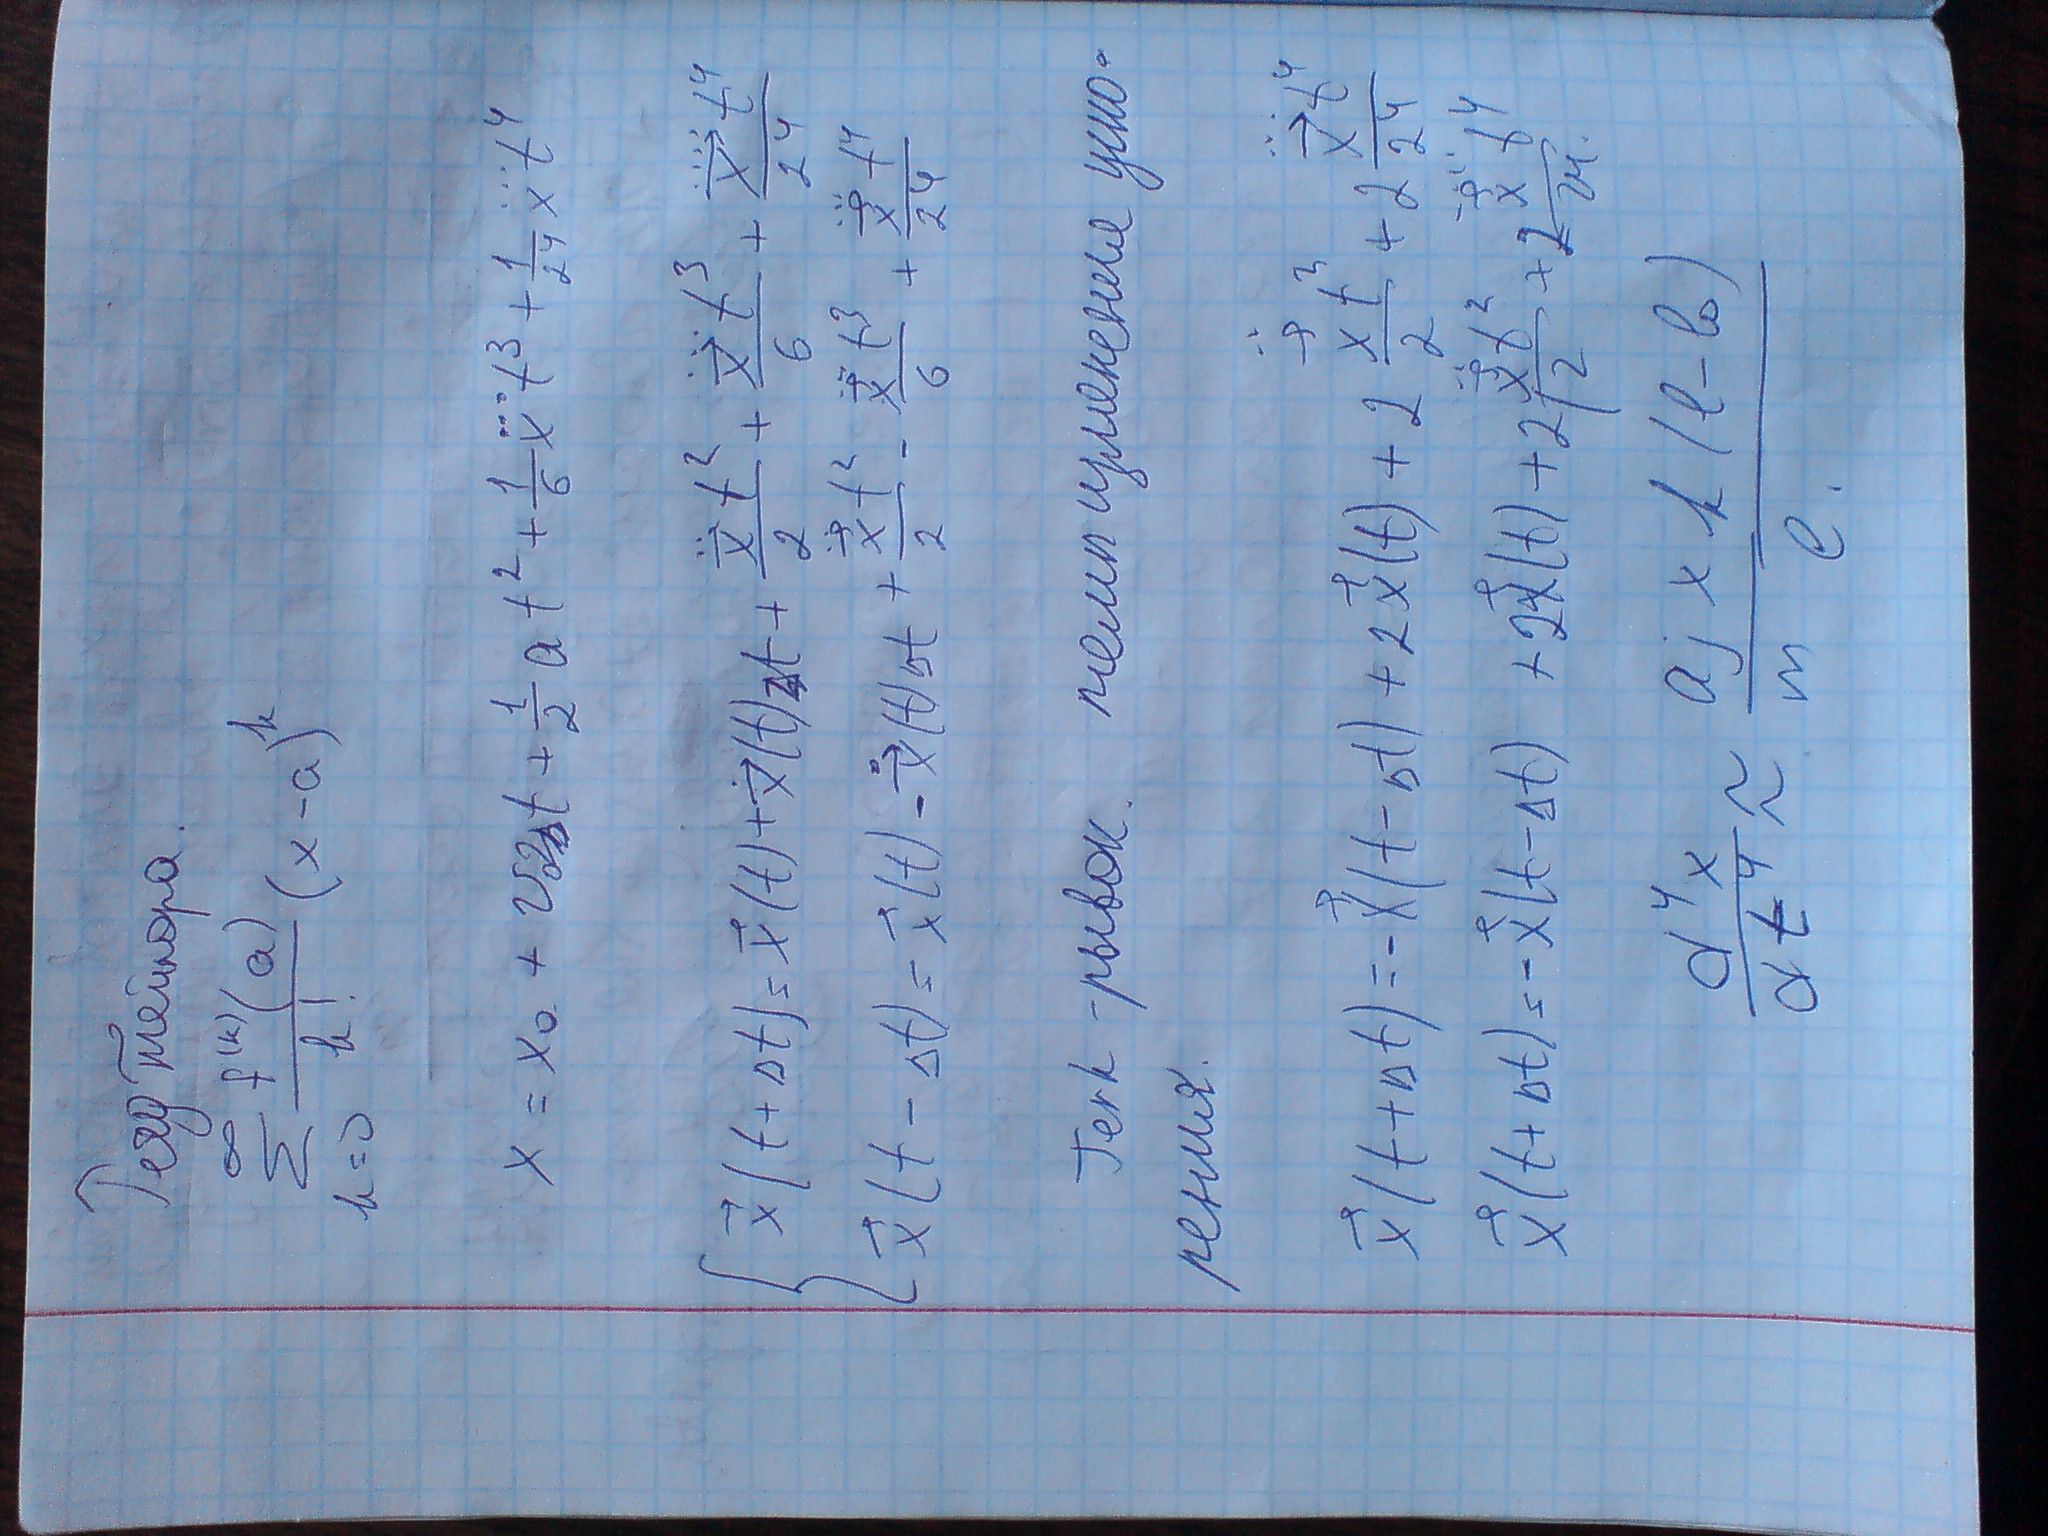 Ряд Тейлора.
∞
∑ f⁽ᵏ⁾(a)/k! (x-a)ᵏ
k=0
x = x₀ + v₀t + 1/2 a t² + 1/6 x⃛ t³ + 1/24 x⃜ t⁴
{ x⃗(t+Δt) = x⃗(t) + ẋ⃗(t)Δt + ẍ⃗t²/2 + x⃛⃗t³/6 + x⃜⃗t⁴/24
x⃗(t-Δt) = x⃗(t) - ẋ⃗(t)Δt + ẍ⃗t²/2 - x⃛⃗t³/6 + x⃜⃗t⁴/24
Jerk - рывок. изменение уско-
рения.
x⃗(t+Δt) = -x⃗(t-Δt) + 2x⃗(t) + 2 ẍ⃗t³/2 + 2 x⃜⃗t⁴/24
x⃗(t+Δt) = -x⃗(t-Δt) + 2x⃗(t) + 2 ẍ⃗t²/2 + 2 x⃜⃗t⁴/24.
d⁴x/dt⁴ ≈ aj/m x k(l-l₀)/l.